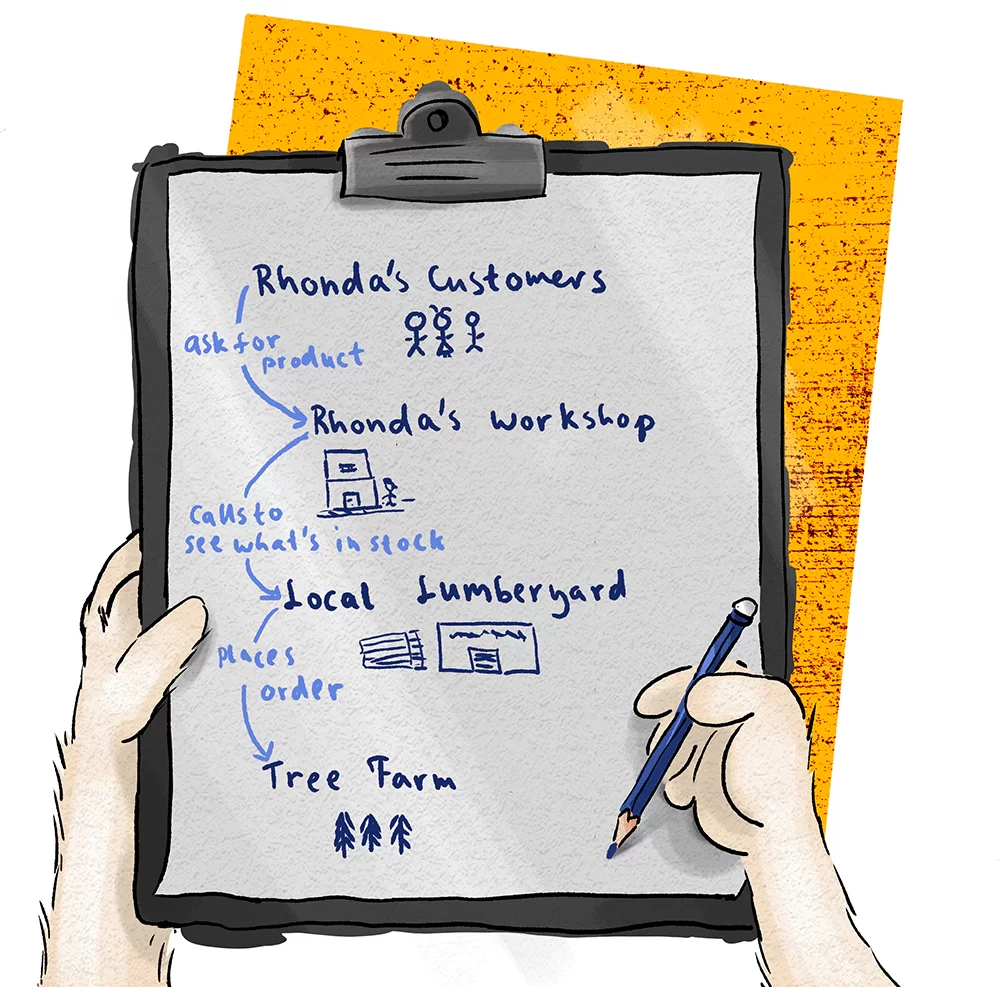 Rhonda's Customers
ask for
product
Rhonda's workshop
Calls to
see what's in stock
Local Lumberyard
places
order
Tree Farm